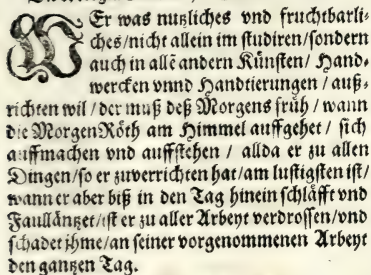 WEr was nutzliches vnd fruchtbarli-
ches/nicht allein im studiren/sondern
auch in allē andern Künsten/ Hand-
wercken vnnd Handtierungen / auß-
richten wil / der muß deß Morgens früh / wann
die MorgenRöth am Himmel auffgehet / sich
auffmachen vnd auffstehen / allda er zu allen
Dingen/so er zuverrichten hat/am lustigsten ist/
wann er aber biß in den Tag hinein schläfft vnd
Faulläntzet/ist er zu aller Arbeyt verdrossen/vnd
schadet jhme/an seiner vorgenommenen Arbeyt
den gantzen Tag.